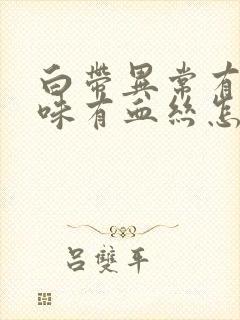 白帶異常有
味有血絲怎
呂雙平